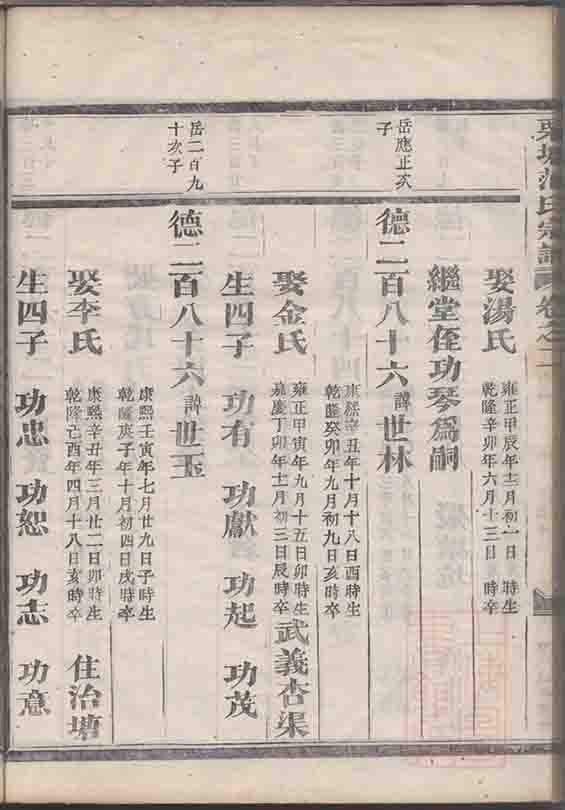 栗坡范氏宗譜 卷之二
娶湯氏
雍正甲辰年十二月初一日 時生
乾隆辛卯年六月十三日 時卒
繼堂侄功琴爲嗣
岳應正次
子
德二百八十六 諱世林
康熙辛丑年十月十八日酉時生
乾隆癸卯年九月初九日亥時卒
娶金氏
雍正甲寅年九月十五日卯時生
嘉慶丁卯年十二月初三日辰時卒
武義杏渠
生四子 功有 功獻 功起 功茂
岳二百九
十次子
德二百八十六 諱世玉
康熙壬寅年七月廿九日子時生
乾隆庚子年十月初四日戌時卒
娶李氏
康熙辛丑年三月廿二日卯時生
乾隆己酉年四月十八日亥時卒
住治塘
生四子 功忠 功恕 功志 功意